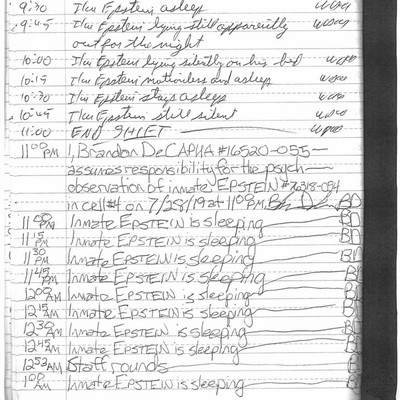 9:30 I/m Epstein asleep
9:45 I/m Epstein lying still apparently
out for the night
10:00 I/m Epstein lying silently on his bed
10:15 I/m Epstein motionless and asleep
10:30 I/m Epstein stays asleep
10:45 I/m Epstein still silent
11:00 END SHIFT
11:00PM I, Brandon DeCAPUA #16520-055
assumes responsibility for the psych
observation of inmate EPSTEIN #76318-054
in cell #4 on 7/28/19 at 11:00PM. BD
11:00 PM Inmate EPSTEIN is sleeping BD
11:15 PM Inmate EPSTEIN is sleeping BD
11:30 PM Inmate EPSTEIN is sleeping BD
11:45 PM Inmate EPSTEIN is sleeping BD
12:00 AM Inmate EPSTEIN is sleeping BD
12:15 AM Inmate EPSTEIN is sleeping BD
12:30 AM Inmate EPSTEIN is sleeping BD
12:45 AM Inmate EPSTEIN is sleeping BD
12:52 AM Staff rounds BD
1:00 AM Inmate EPSTEIN is sleeping BD